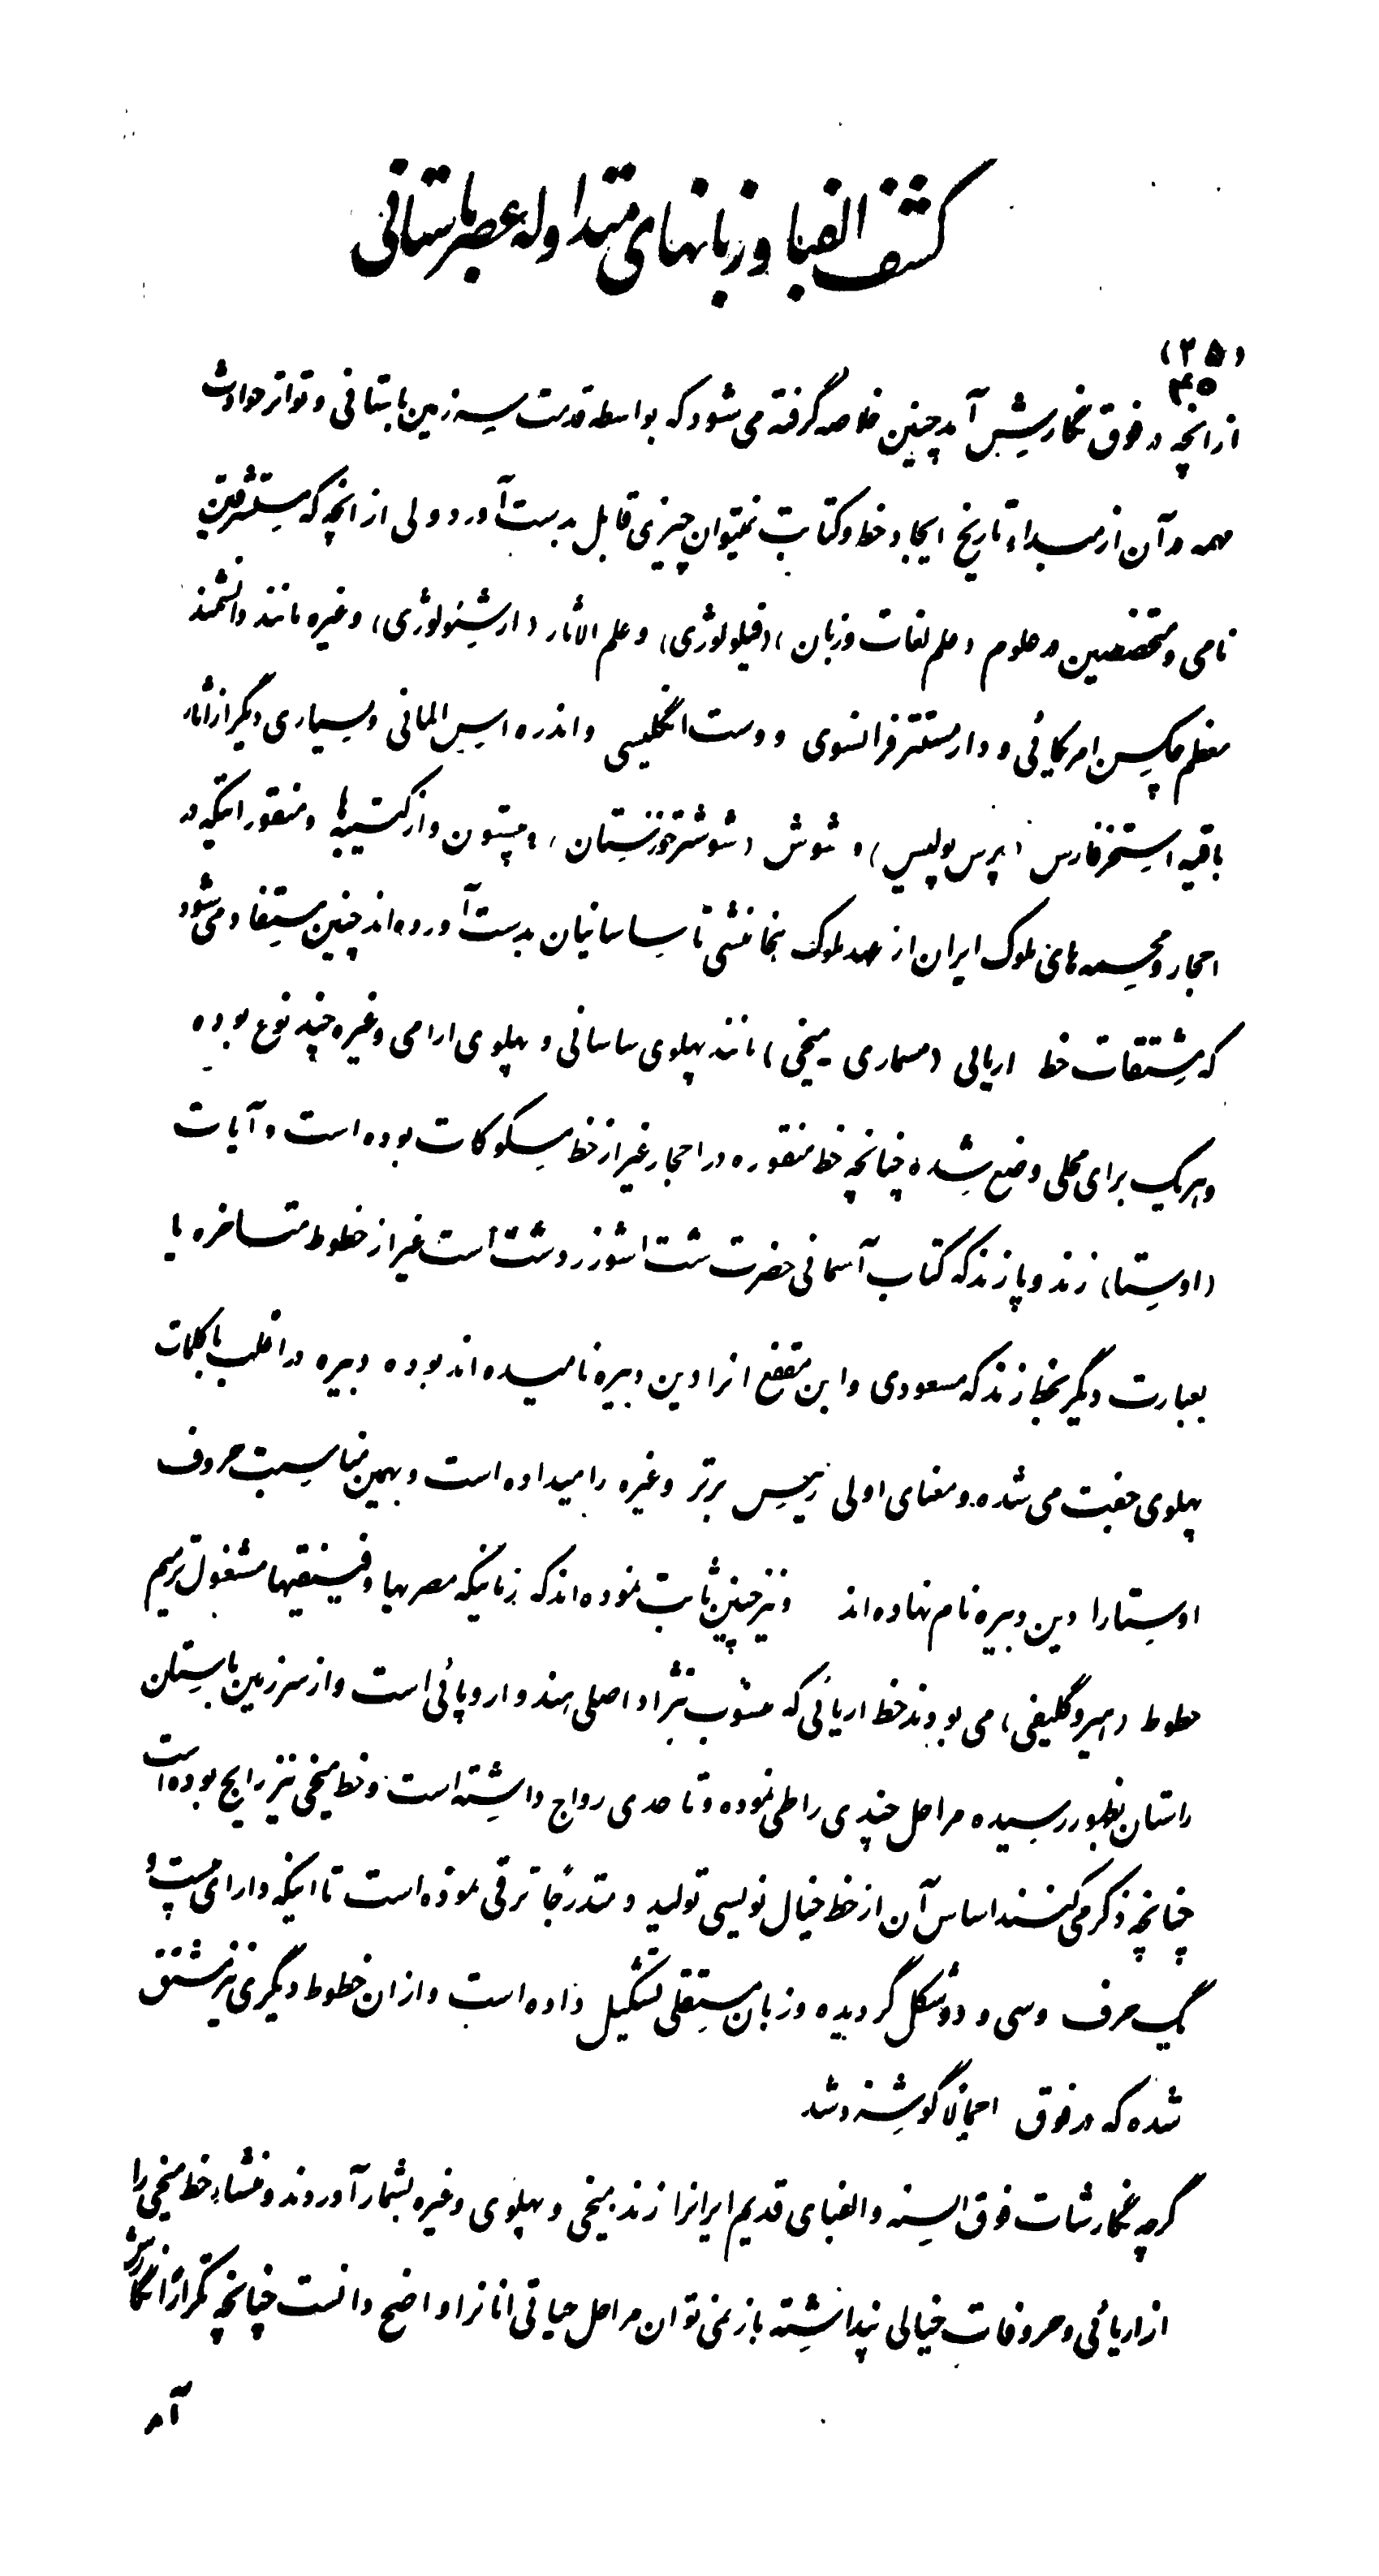 کشف الفبا و زبانهای متداوله عصر باستانی
(۲۵)
۴۵
از انچه در فوق نگارش آمد چنین خلاصه گرفته می شود که بواسطه قدمت سرزمین باستانی و تواتر حوادث
مهمه در آن از مبداء تاریخ ایجاد خط و کتابت نمیتوان چیزی قابل بدست آورد ولی از انچه که مستشرقین
نامی و متخصصین در علوم (علم لغات و زبان) (فیلولوژی) و علم الاثار (ارشئولوژی) و غیره مانند دانشمند
معظم جاکسن امریکائی و دارمستتر فرانسوی و وست انگلیسی و اندره اس المانی و بسیاری دیگر از اثار
باقیه استخر فارس (پرس پولیس) و شوش (شوشتر خوزستان) و بیستون و از کتیبه ها و منقوراتیکه در
احجار و مجسمه های ملوک ایران از عهد ملوک هخامنشی تا ساسانیان بدست آورده اند چنین مستفاد می شود
که مشتقات خط اریائی (مسماری - میخی) مانند پهلوی ساسانی و پهلوی ارامی و غیره چند نوع بوده
و هر یک برای محلی وضع شده چنانچه خط منقوره در احجار غیر از خط مسکوکات بوده است و آیات
(اوستا) زند و پازند که کتاب آسمانی حضرت شت اشو زردشت است غیر از خطوط متاخره یا
بعبارت دیگر بخط زند که مسعودی و ابن مقفع انرا دین دبیره نامیده اند بوده دبیره در اغلب با کلمات
پهلوی جفت می شده و معنای اولی رئیس برتر و غیره را میداده است و بهمین مناسبت حروف
اوستا را دین دبیره نام نهاده اند و نیز چنین ثابت نموده اند که زمانیکه مصریها و فینیقیها مشغول ترسیم
خطوط (هیروگلیفی) می بودند خط اریائی که منسوب بنژاد اصلی هند و اروپائی است و از سرزمین باستان
راستان بظهور رسیده مراحل چندی را طی نموده و تا حدی رواج داشته است و خط میخی نیز رایج بوده است
چنانچه ذکر می کنند اساس آن از خط خیال نویسی تولید و متدرجاً ترقی نموده است تا اینکه دارای بیست و
یک حرف و سی و دو شکل گردیده و زبان مستقلی تشکیل داده است و از ان خطوط دیگری نیز مشتق
شده که در فوق اجمالا گوشزد شد
گرچه نگارشات فوق السنه و الفبای قدیم ایرانرا زند میخی و پهلوی و غیره بشمار آوردند و منشاء خط میخی را
از اریائی و حروفات خیالی پنداشته باز نمی توان مراحل حیاتی انانرا واضح دانست چنانچه تکراراً نگارش
آمد